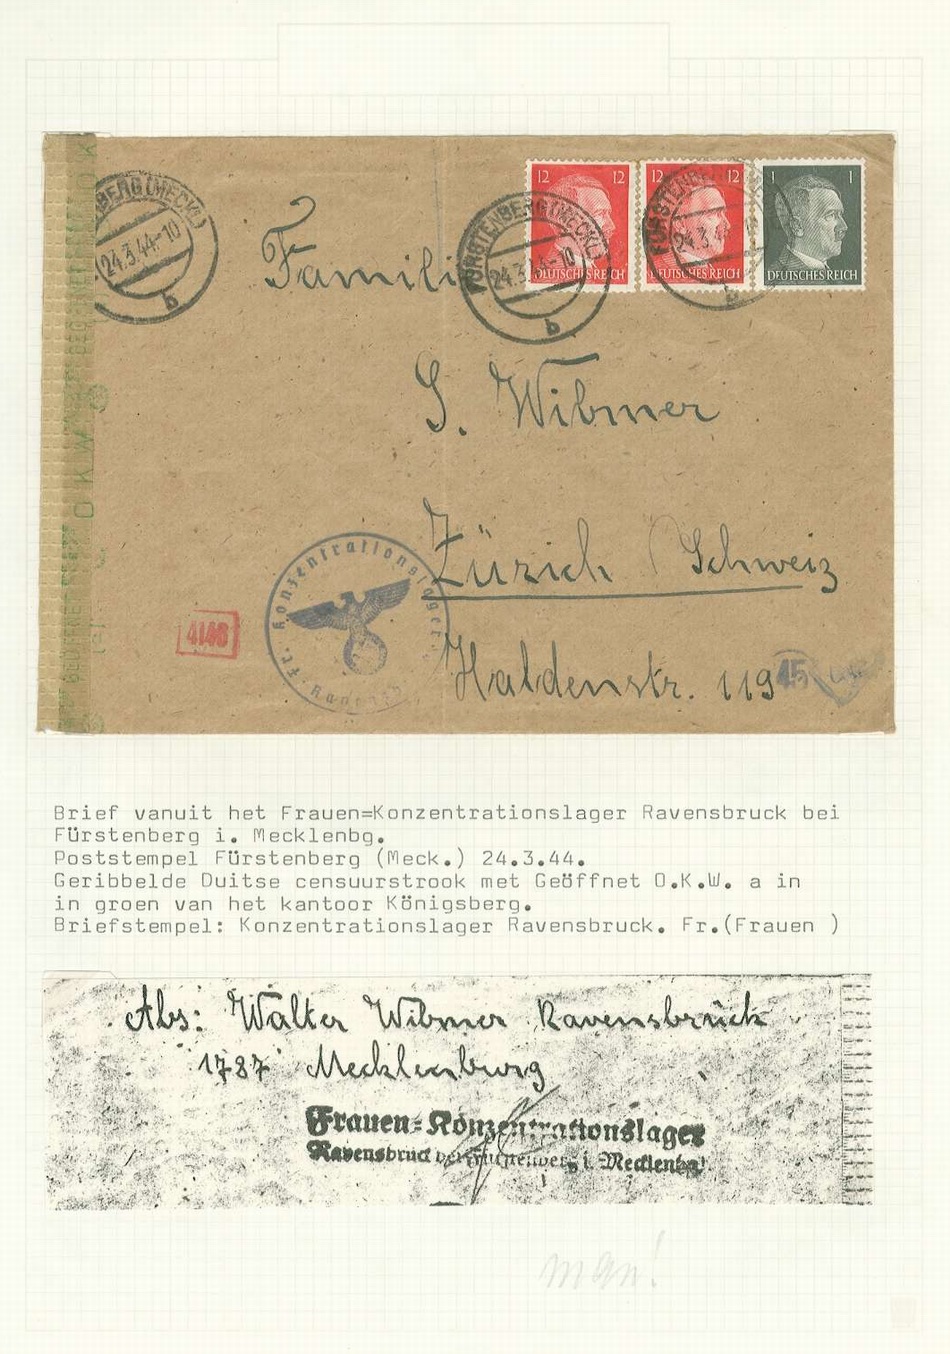 FÜRSTENBERG (MECKL)
24.3.44.-10
b
12 12
DEUTSCHES REICH
12 12
DEUTSCHES REICH
1 1
DEUTSCHES REICH
FÜRSTENBERG (MECKL)
24.3.44.-10
b
Familie
S. Wibmer
Zürich (Schweiz
Haldenstr. 119
Konzentrationslager
4146
45
O K W
Brief vanuit het Frauen=Konzentrationslager Ravensbruck bei
Fürstenberg i. Mecklenbg.
Poststempel Fürstenberg (Meck.) 24.3.44.
Geribbelde Duitse censuurstrook met Geöffnet O.K.W. a in
in groen van het kantoor Königsberg.
Briefstempel: Konzentrationslager Ravensbruck. Fr.(Frauen )
Abs: Walter Wibmer Ravensbrück
1787 Mecklenburg
Frauen=Konzentrationslager
Ravensbrück bei Fürstenberg i. Mecklenbg.
man!